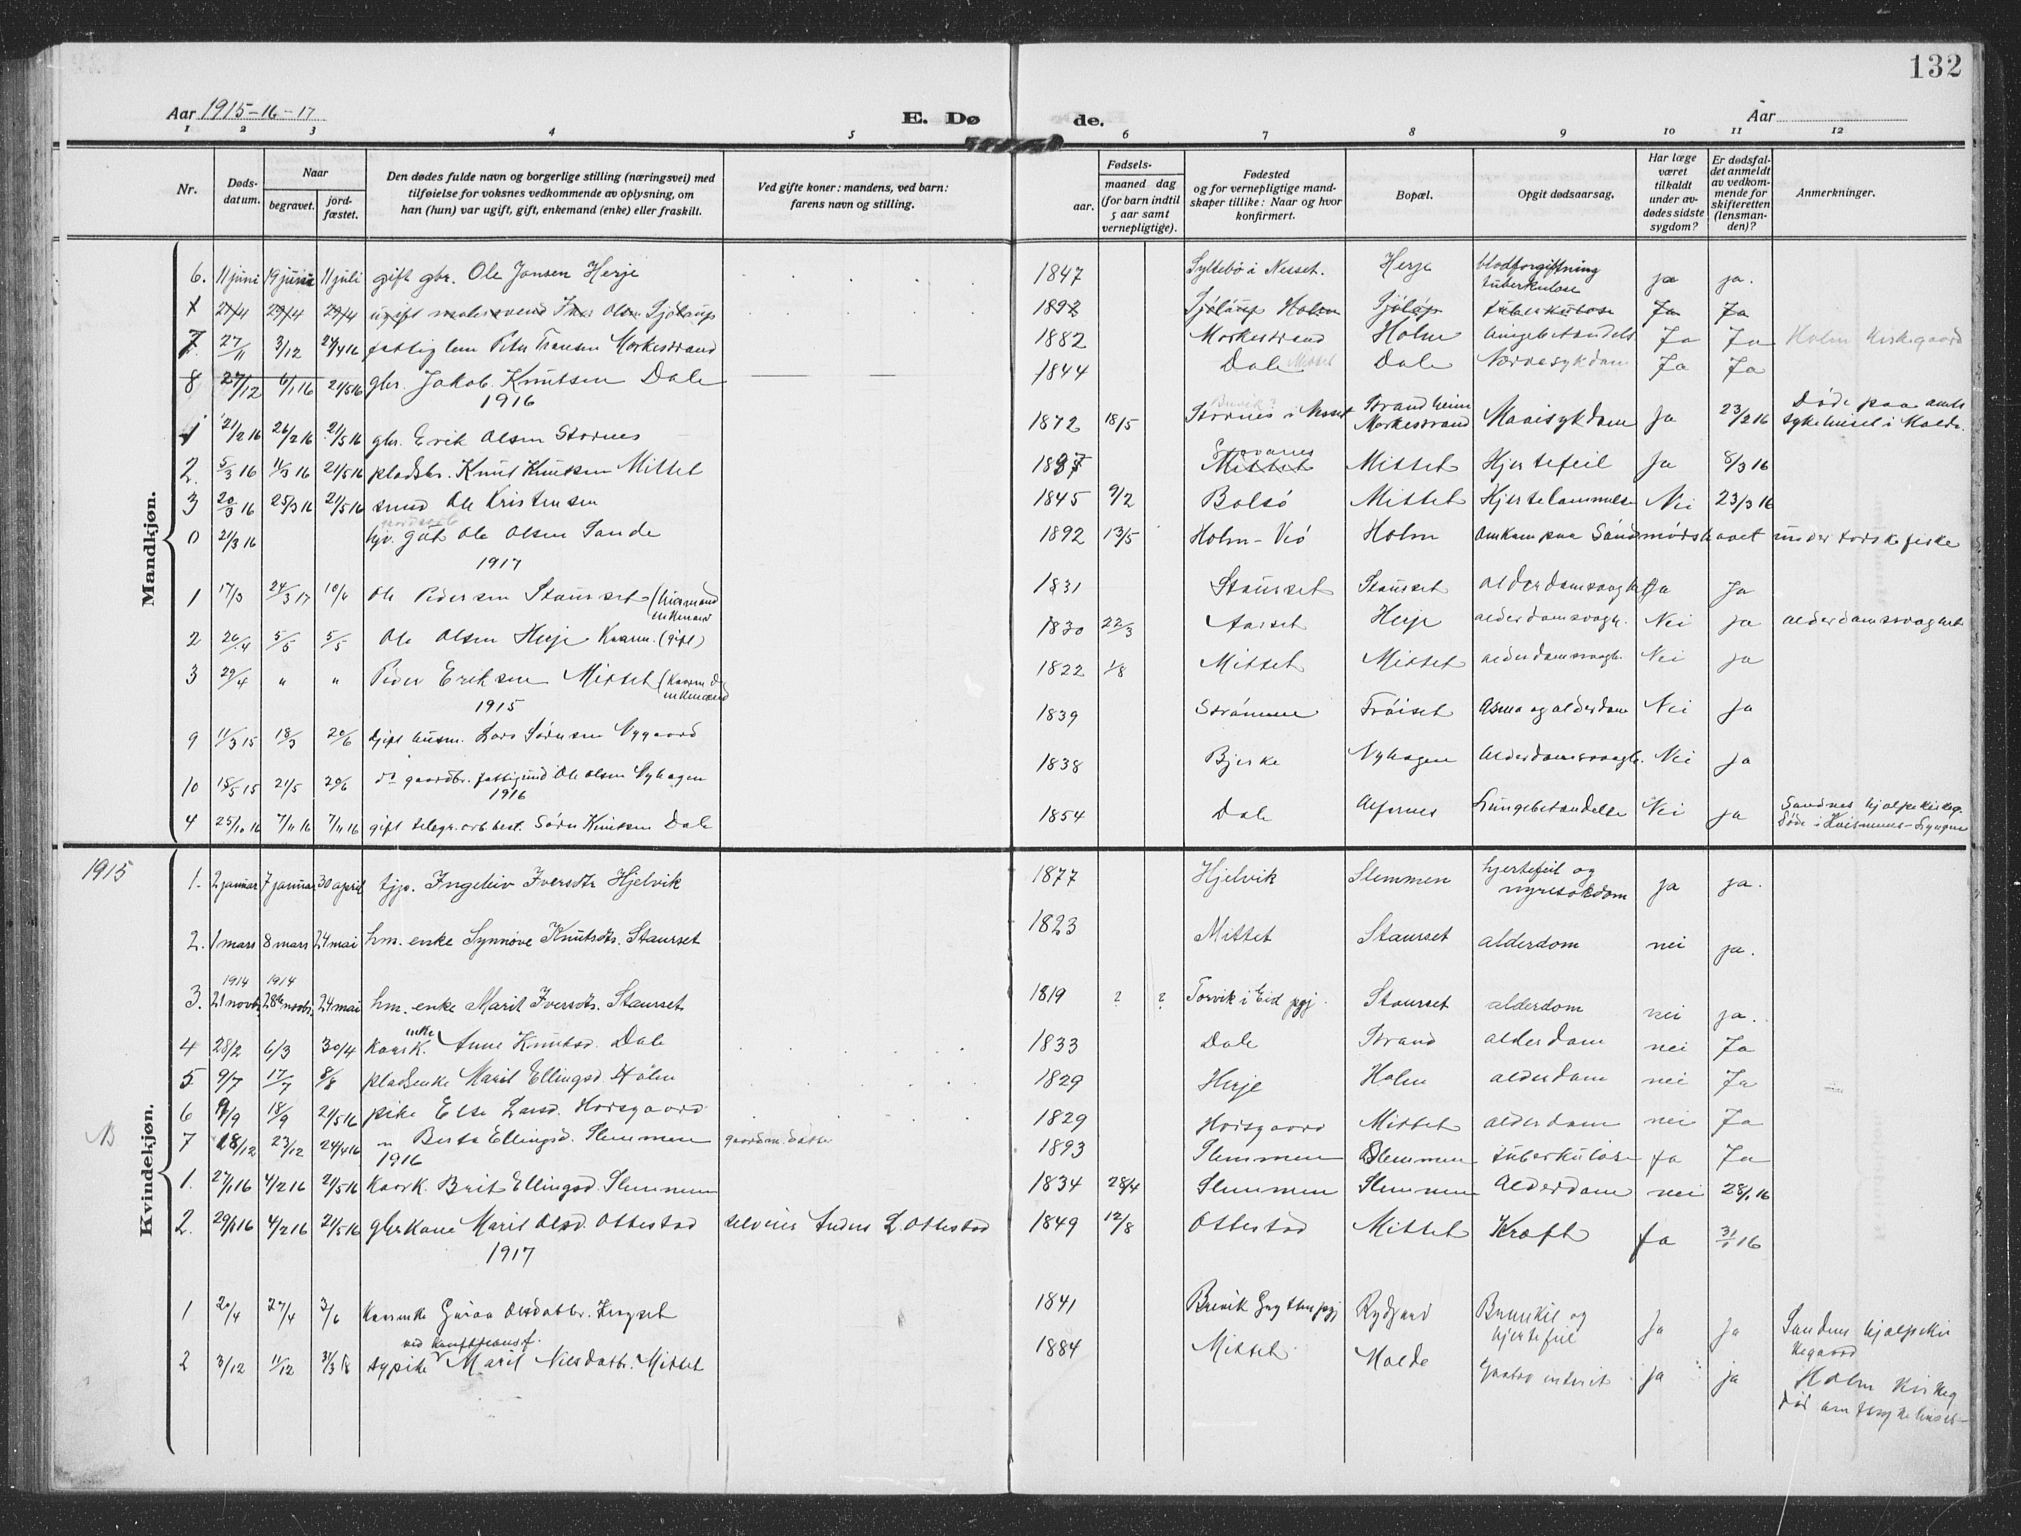 132
Aar 1915-16-17
E. Dø de.
Aar
1 2 3 4 5 6 7 8 9 10 11 12
Nr.
Døds-datum.
Naar
begravet.
jord-fæstet.
Den dødes fulde navn og borgerlige stilling (næringsvei) med
tilføielse for voksnes vedkommende av oplysning, om
han (hun) var ugift, gift, enkemand (enke) eller fraskilt.
Ved gifte koner: mandens, ved barn:
farens navn og stilling.
Fødsels-
aar. maaned dag
(for barn indtil
5 aar samt
vernepligtige).
Fødested
og for vernepligtige mand-
skaper tillike: Naar og hvor
konfirmert.
Bopæl.
Opgit dødsaarsag.
Har læge
været
tilkaldt
under av-
dødes sidste
sygdom?
Er dødsfal-
det anmeldt
av vedkom-
mende for
skifteretten
(lensman-
den)?
Anmerkninger.
Mandkjøn.
6. 11 juni 19 juni 11 juli gift gbr. Ole Jonsen Herje 1847 Syltebø i Nesset. Herje blodforgiftning tuberkulose ja ja.
1 27/4 29/4 29/4 ugift malersvend Olsen Sjølaup 1892 Sjølaup Holm Sjöløp tuberkulose Ja Ja
7 27/11 3/12 24/4 16 fattiglem Peter Fransen Morkestrand 1882 Morkestrand Holm lungebetændels Ja Ja Holm Kirkegaard
8 27/12 6/1 16 21/5 16 gbr. Jakob Knutsen Dale 1844 Dale Mittet Dale Nervesykdom Ja Ja
1916
1 21/2 16 26/2 16 21/5 16 gbr. Erik Olsen Stornes 1872 18/5 Stornes i Nesset Strandheim Morkestrand Mavesykdom Ja 23/2 16 Døde paa amts sykehuset i Molde.
2. 5/3 16 11/3 16 21/5 16 pladsbr. Knut Knutsen Mittet 1837 Mittet Mittet Hjertefeil Ja 8/3 16
3 20/3 16 25/3 16 21/5 16 smed Ole Kristensen 1845 9/2 Bolsø Mittet Hjertelammelse Nei 23/3 16
0 21/3 16 gut Ole Olsen Sande 1892 13/5 Holm-Veø Holm Omkom paa Söndmørshavet under torskefiske
1917
1 17/3 24/3 17 10/6 Ole Pedersen Staurset (husmand enkemand 1831 Staurset Staurset alderdomssvagh. Ja Ja
2 26/4 5/5 5/5 Ole Olsen Herje Kaarm. (gift) 1830 22/3 Aarset Herje alderdomsvagh. Nei ja alderdomsvaghet
3 29/4 " " Peder Eriksen Mittet (Kaarm Do enkemand 1822 1/8 Mittet Mittet alderdomssvagh. Nei ja
1915
9 11/3 15 18/3 20/6 Gift husm. Lars Sørensen Nygaard 1839 Strømmen Frøiset Asma og alderdom Nei Ja
10 15/5 15 21/5 20/6 do gaardbr. Ole Olsen Nyhagen 1838 Bjerke Nyhagen Alderdomssvagh. Nei Ja
1916
4 25/10 16 7/11 16 7/11 16 gift telegr. arb. best. Søren Knutsen Dale 1854 Dale Alfarnes Lungebetændelse Nei ja Sandnes hjelpekirkeg.
Kvindekjøn.
1915
1. 2 januar 7 januar 30 april tjp. Ingeleiv Iversdtr Hjelvik 1877 Hjelvik Slemmen hjertefeil og nyresykdom ja ja.
2. 1 mars 8 mars 24 mai hm. enke Synnøve Knutsdtr. Staurset 1823 Mittet Staurset alderdom nei ja.
1914 1914
3. 21 novbr. 28de novbr. 24 mai hm. enke Marit Iversdtr. Staurset 1819 ? ? Torvik i Eid pgj. Staurset alderdom nei ja.
4 28/2 6/3 30/4 enke Kaark. Anne Knutsd. Dale 1833 Dale Strand alderdom nei Ja
5 9/7 17/7 8/8 pladsenke Marit Ellingsd. Holm 1829 Herje Holm alderdom nei Ja
6 9/9 18/9 21/5 16 pike Else Larsd. Horsgaard 1829 Horsgaard Mittet alderdom nei Ja
NB 7 18/12 23/12 24/4 16 " Berta Ellingsd. Slemmen gaardm. datter 1893 Slemmen Slemmen tuberkulose Ja Ja
1916
1. 27/1 16 4/2 16 21/5 16 Kaark. Brit Ellingsd. Slemmen 1834 28/4 Slemmen Slemmen Alderdom nei 28/1 16
2. 29/1 16 4/2 16 21/5 16 gbrkone Marit Olsd. Ottestad selveier Anders L. Ottestad 1849 12/8 Ottestad Mittet Kræft Ja 31/1 16
1917
1 20/4 27/4 3/6 Kaarenke Guraa Olsdatter. 1841 Brevik Grytten pgj Rydgaard og hjertefeil Ja Ja Sandnes hjelpekirkegaard
2 3/12 11/12 31/3 18 sypike Marit Nilsdatr. Mittet 1884 Mittet Molde ja ja Holm Kirkeg død amtssykehuset